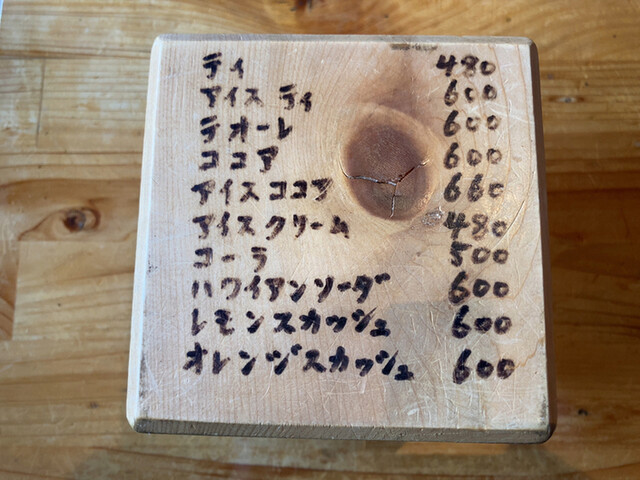 ティ 480
アイスティ 600
テオーレ 600
ココア 600
アイスココア 660
アイスクリーム 480
コーラ 500
ハワイアンソーダ 600
レモンスカッシュ 600
オレンジスカッシュ 600